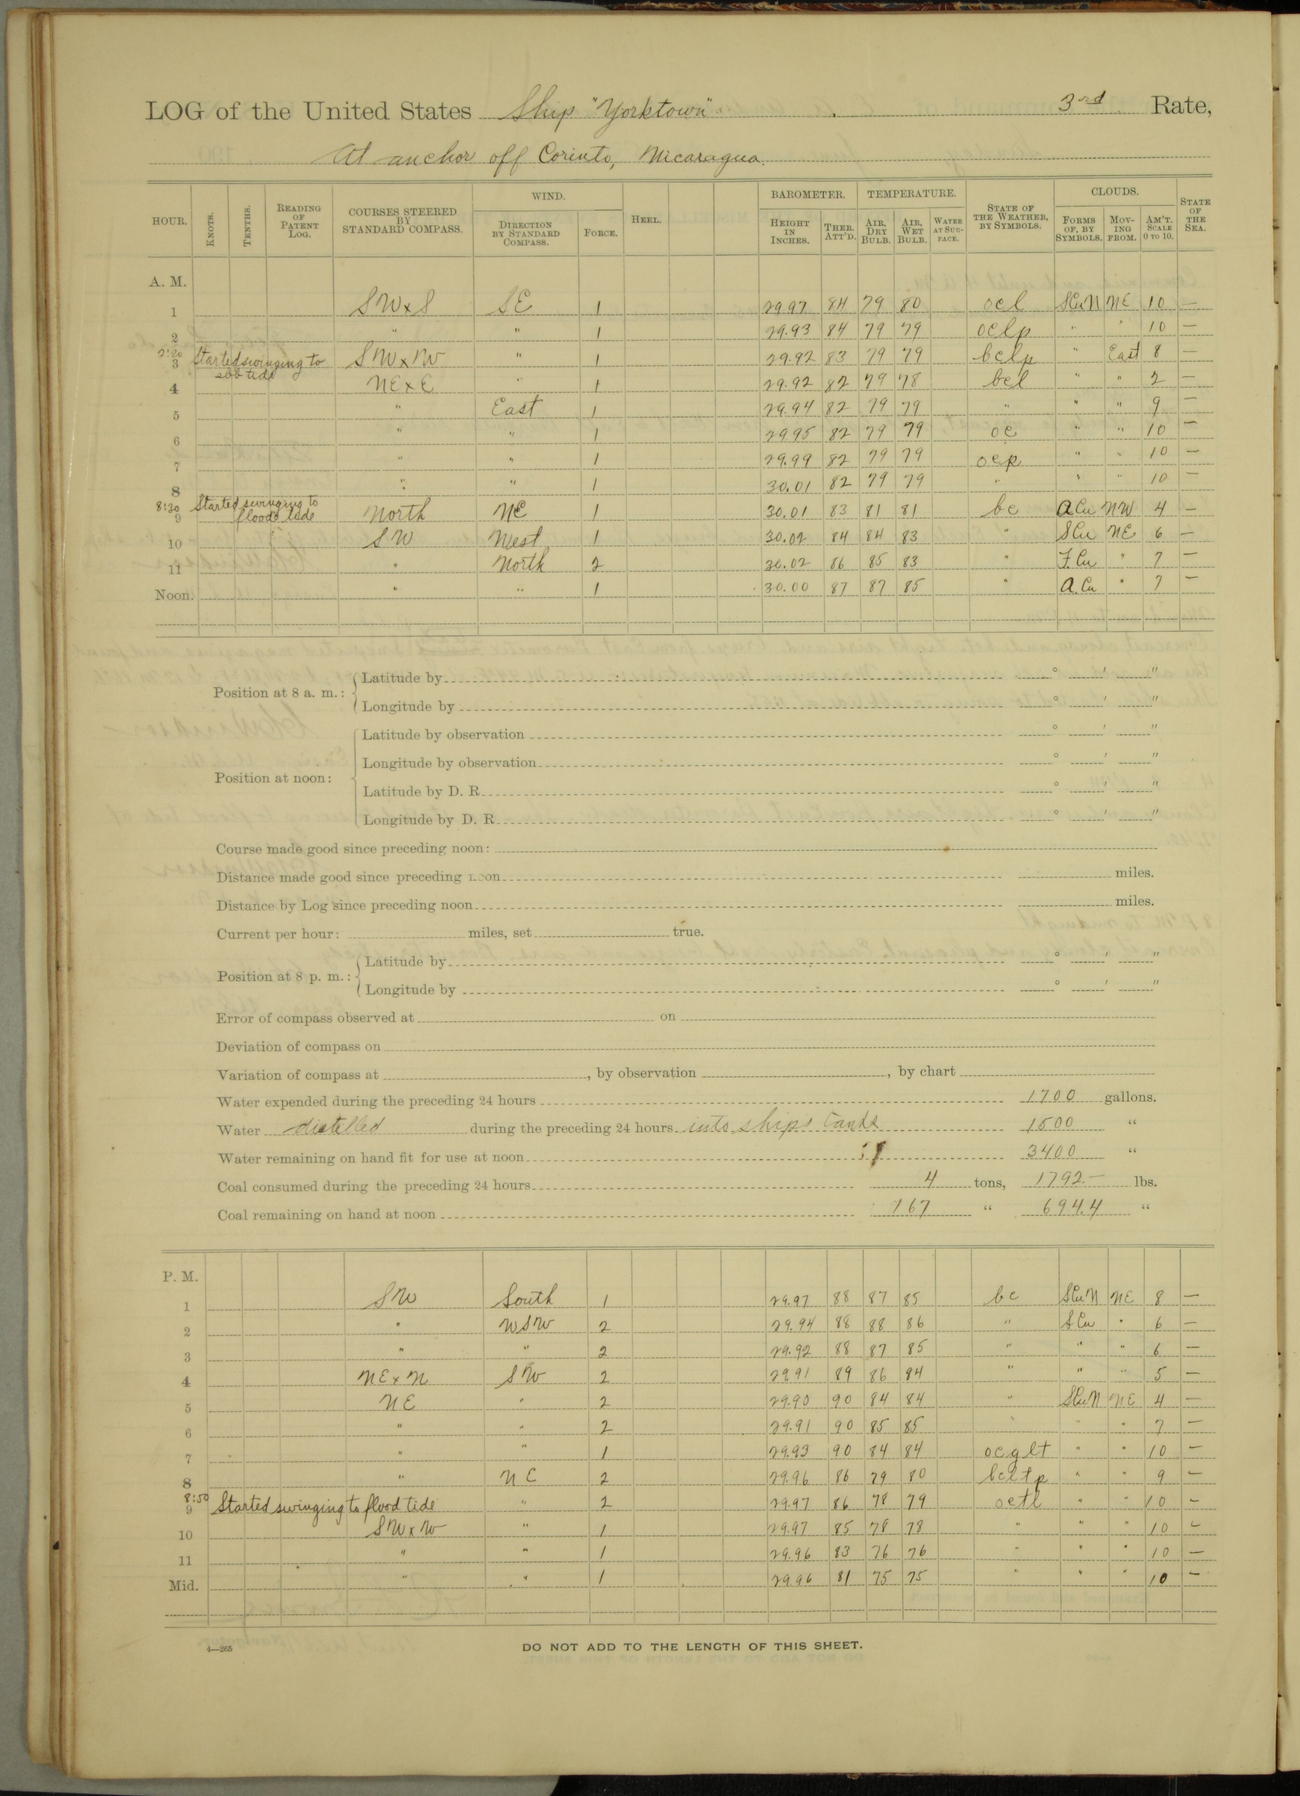 LOG of the United States Ship "Yorktown" 3rd Rate,
At anchor off Corinto, Nicaragua.
HOUR. KNOTS. TENTHS. READING OF PATENT LOG. COURSES STEERED BY STANDARD COMPASS. WIND. DIRECTION BY STANDARD COMPASS. FORCE. HEEL. BAROMETER. HEIGHT IN INCHES. THER. ATT'D. TEMPERATURE. AIR, DRY BULB. AIR, WET BULB. WATER AT SUR-FACE. STATE OF THE WEATHER, BY SYMBOLS. CLOUDS. FORMS OF, BY SYMBOLS. MOV-ING FROM. AM'T. SCALE 0 TO 10. STATE OF THE SEA.
A. M.
1 SWxS SE 1 29.97 84 79 80 ocl SCuN NE 10 —
2 " " 1 29.93 84 79 79 oclp " " 10 —
2:20 Started swinging to ebb tide
3 SWxW " 1 29.92 83 79 79 bclp " East 8 —
4 NExE " 1 29.92 82 79 78 bcl " " 2 —
5 " East 1 29.94 82 79 79 " " " 9 —
6 " " 1 29.95 82 79 79 oc " " 10 —
7 " " 1 29.99 82 79 79 ocp " " 10 —
8 " " 1 30.01 82 79 79 " " " 10 —
8:30 Started swinging to flood tide
9 North NE 1 30.01 83 81 81 bc A.Cu NW 4 —
10 SW West 1 30.02 84 84 83 " SCu NE 6 —
11 " North 2 30.02 86 85 83 " F.Cu " 7 —
Noon. " " 1 30.00 87 87 85 " A.Cu " 7 —
Position at 8 a. m.: Latitude by ° ' "
Longitude by ° ' "
Position at noon: Latitude by observation ° ' "
Longitude by observation ° ' "
Latitude by D. R. ° ' "
Longitude by D. R. ° ' "
Course made good since preceding noon:
Distance made good since preceding noon miles.
Distance by Log since preceding noon miles.
Current per hour: miles, set true.
Position at 8 p. m.: Latitude by ° ' "
Longitude by ° ' "
Error of compass observed at on
Deviation of compass on
Variation of compass at , by observation , by chart
Water expended during the preceding 24 hours 1700 gallons.
Water distilled during the preceding 24 hours into ships tanks 1500 "
Water remaining on hand fit for use at noon 3400 "
Coal consumed during the preceding 24 hours 4 tons, 1792— lbs.
Coal remaining on hand at noon 167 " 694.4 "
P. M.
1 SW South 1 29.97 88 87 85 bc SCuN NE 8 —
2 " WSW 2 29.94 88 88 86 " SCu " 6 —
3 " " 2 29.92 88 87 85 " " " 6 —
4 NExN SW 2 29.91 89 86 84 " " " 5 —
5 NE " 2 29.90 90 84 84 " SCuN NE 4 —
6 " " 2 29.91 90 85 85 " " " 7 —
7 " " 1 29.93 90 84 84 ocglt " " 10 —
8 " NE 2 29.96 86 79 80 bcltp " " 9 —
8:50 Started swinging to flood tide
9 " 2 29.97 86 78 79 octl " " 10 —
10 SWxW " 1 29.97 85 78 78 " " " 10 —
11 " " 1 29.96 83 76 76 " " " 10 —
Mid. " " 1 29.96 81 75 75 " " " 10 —
4—265 DO NOT ADD TO THE LENGTH OF THIS SHEET.